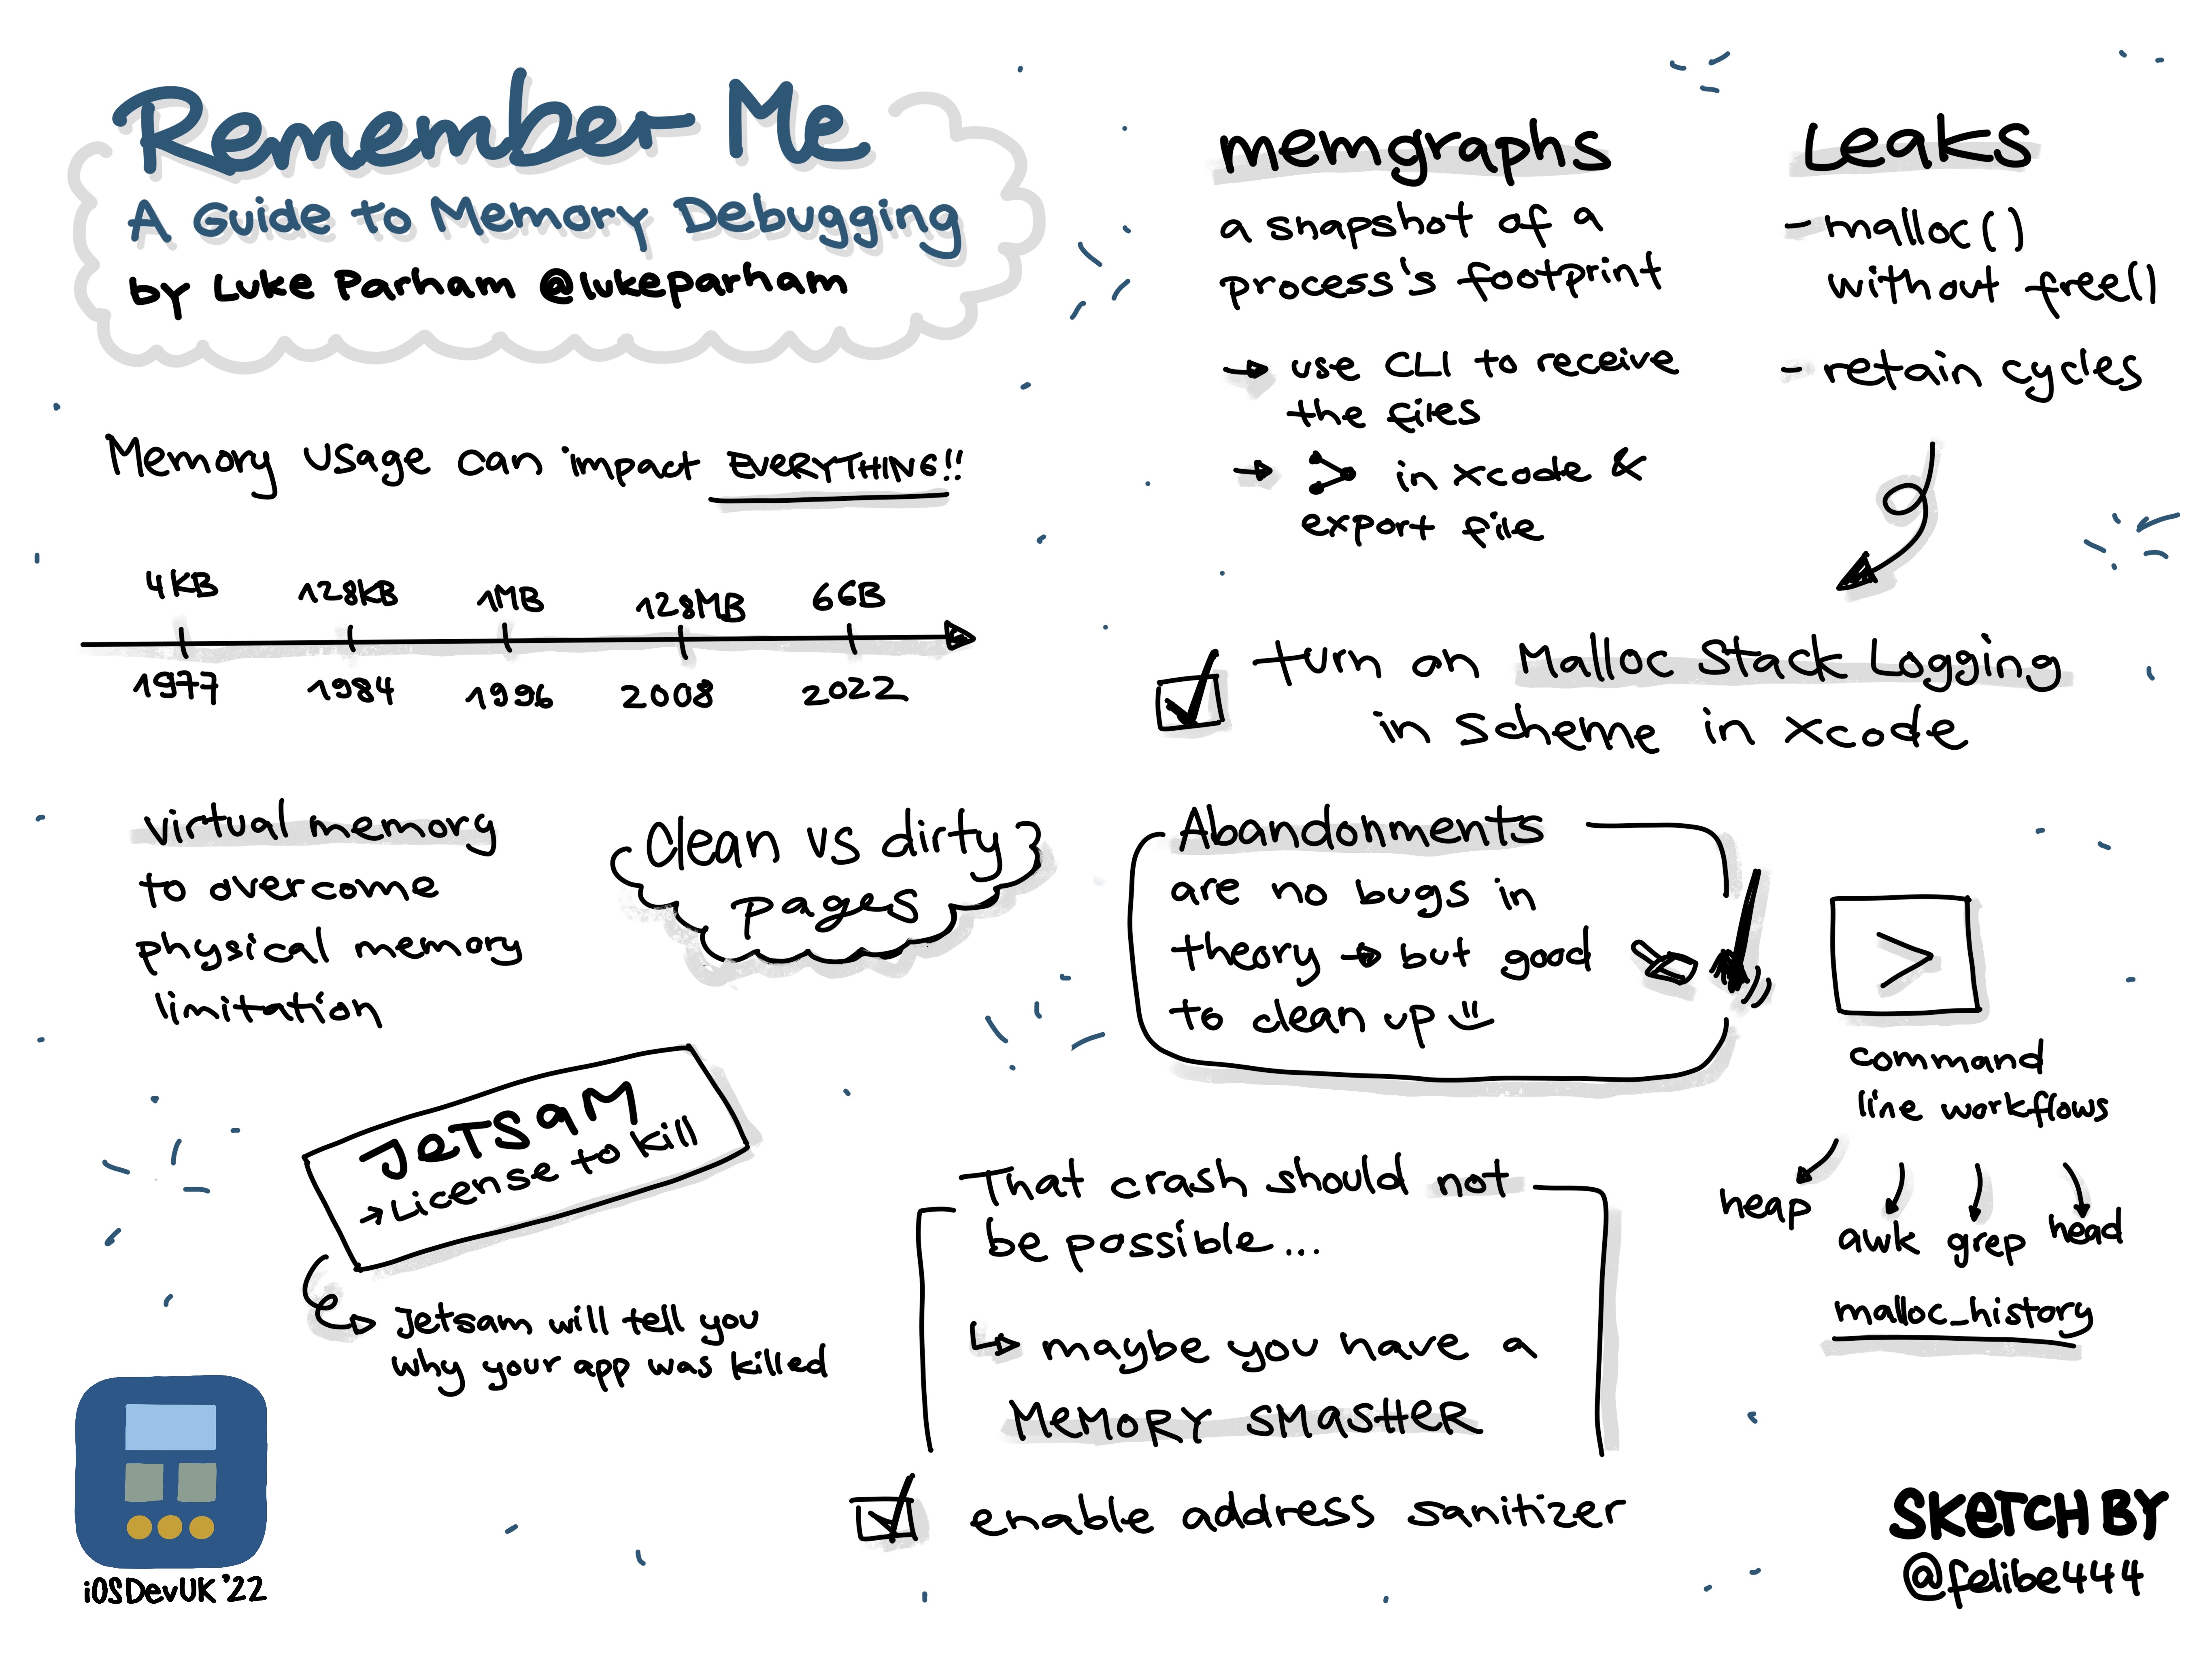 Remember Me
A Guide to Memory Debugging
by Luke Parham @lukeparham
Memory usage can impact EVERYTHING!!
4KB 128KB 1MB 128MB 6GB
1977 1984 1996 2008 2022
virtual memory
to overcome
physical memory
limitation
Clean vs dirty
pages
JETSAM
→ License to kill
Jetsam will tell you
why your app was killed
iOSDevUK '22
memgraphs
a snapshot of a
process's footprint
→ use CLI to receive
the files
→ in xcode &
export file
Leaks
- malloc()
without free()
- retain cycles
turn on Malloc Stack Logging
in Scheme in Xcode
Abandonments
are no bugs in
theory → but good
to clean up
>
command
line workflows
heap
awk grep head
malloc_history
That crash should not
be possible...
↳ maybe you have a
MEMORY SMASHER
enable address sanitizer
SKETCH BY
@felibe444